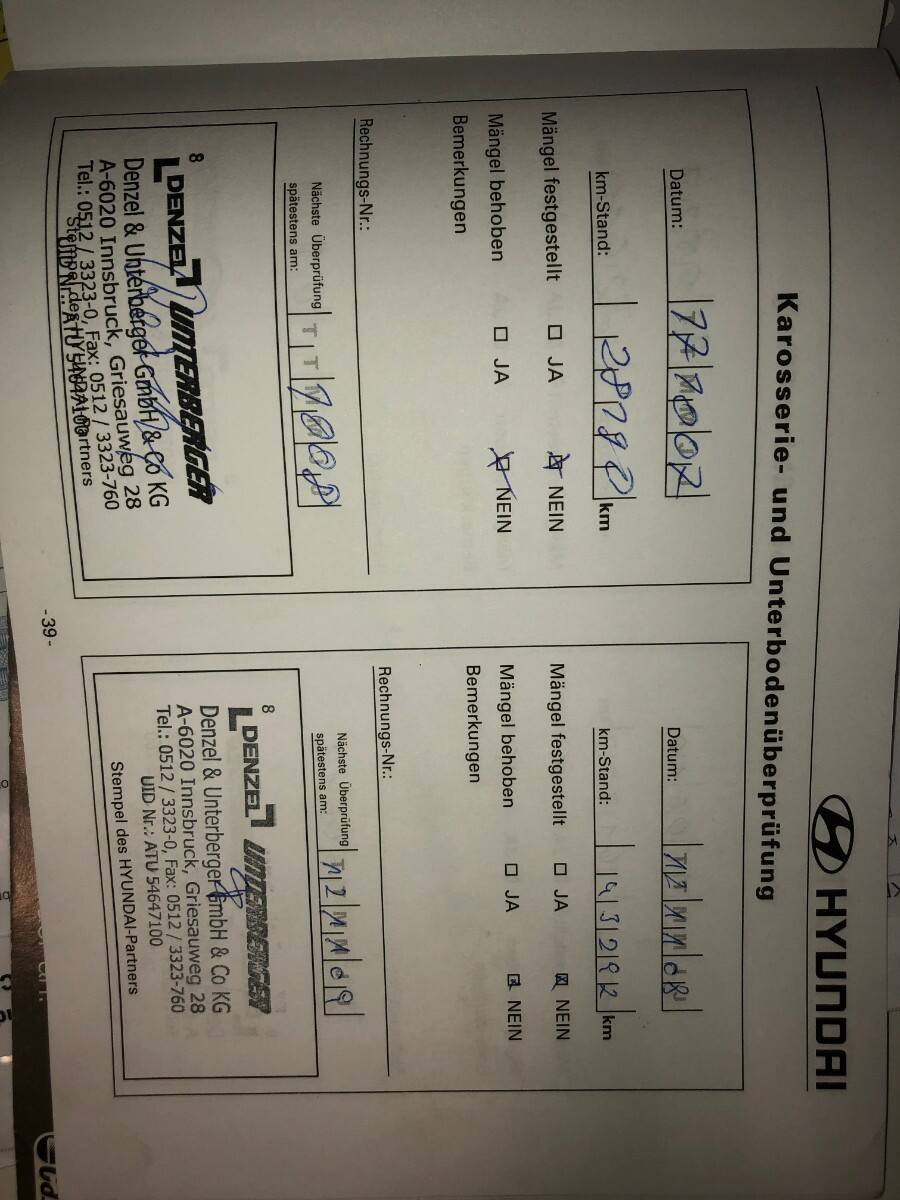 HYUNDAI
Karosserie- und Unterbodenüberprüfung
Datum:
km-Stand: km
Mängel festgestellt JA NEIN
Mängel behoben JA NEIN
Bemerkungen
Rechnungs-Nr.:
Nächste Überprüfung
spätestens am:
8
DENZEL UNTERBERGER
Denzel & Unterberger GmbH & Co KG
A-6020 Innsbruck, Griesauweg 28
Tel.: 0512 / 3323-0, Fax: 0512 / 3323-760
UID Nr.: ATU 54647100
Stempel des HYUNDAI-Partners
Datum: 121108
km-Stand: km
Mängel festgestellt JA NEIN
Mängel behoben JA NEIN
Bemerkungen
Rechnungs-Nr.:
Nächste Überprüfung
spätestens am: 121109
8
DENZEL UNTERBERGER
Denzel & Unterberger GmbH & Co KG
A-6020 Innsbruck, Griesauweg 28
Tel.: 0512 / 3323-0, Fax: 0512 / 3323-760
UID Nr.: ATU 54647100
Stempel des HYUNDAI-Partners
-39-